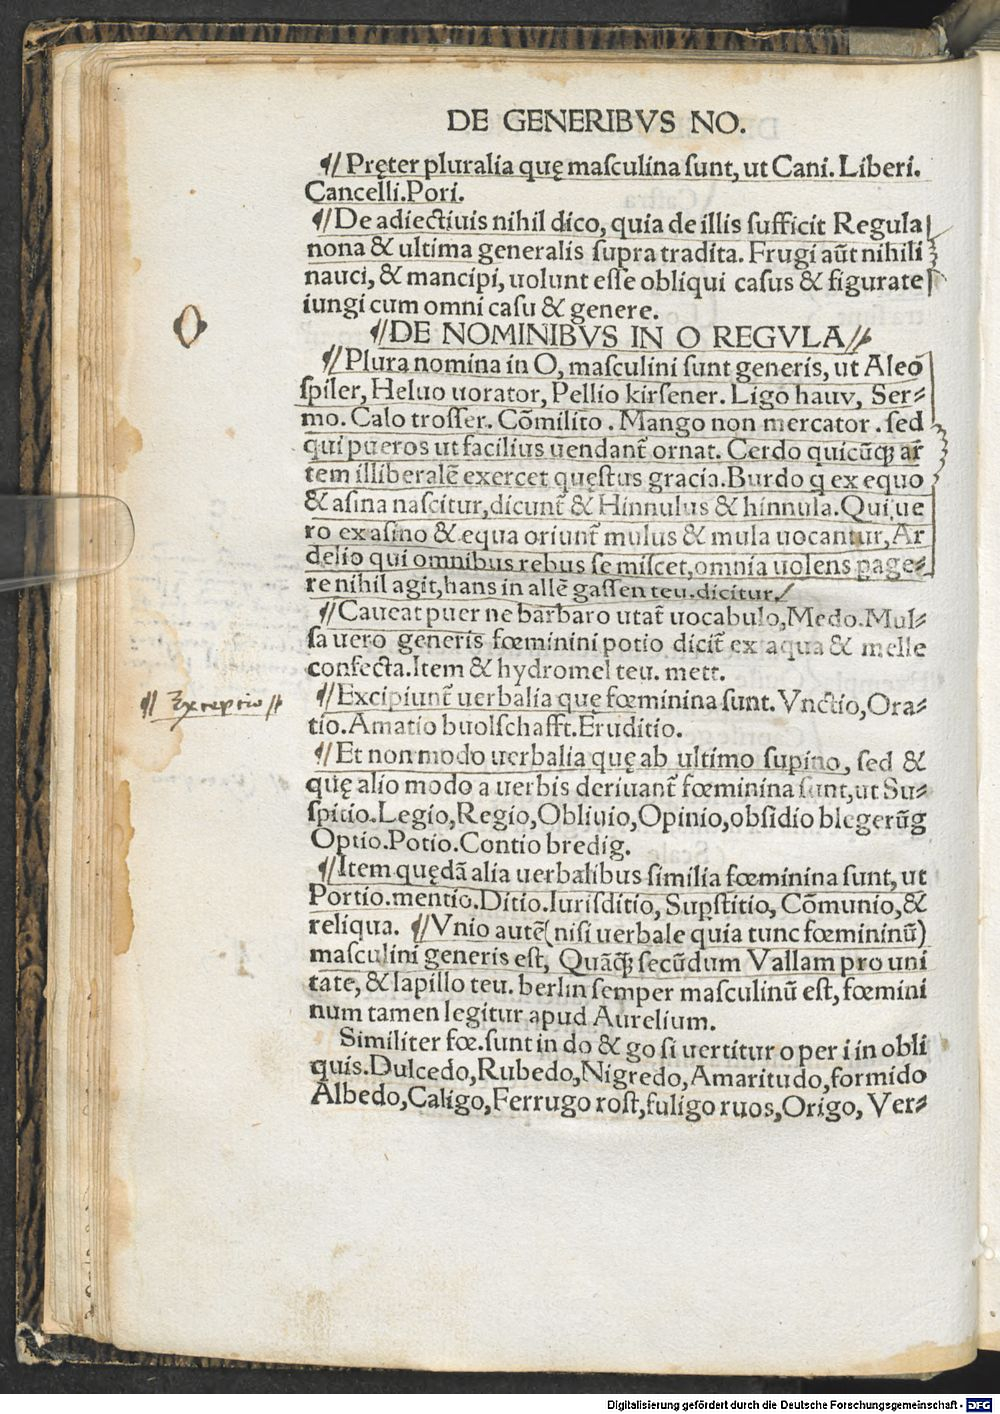 DE GENERIBVS NO.
¶ Pręter pluralia quę masculina sunt, ut Cani. Liberi.
Cancelli. Pori.
¶ De adiectiuis nihil dico, quia de illis sufficit Regula
nona & ultima generalis supra tradita. Frugi aūt nihili
nauci, & mancipi, uolunt esse obliqui casus & figurate
iungi cum omni casu & genere.
O
¶ DE NOMINIBVS IN O REGVLA
¶ Plura nomina in O, masculini sunt generis, ut Aleo
spiler, Heluo uorator, Pellio kirsener. Ligo hauv, Ser⸗
mo. Calo trosser. Cōmilito. Mango non mercator. sed
qui pueros ut facilius uendant̄ ornat. Cerdo quicūqꝫ ar
tem illiberalē exercet quęstus gracia. Burdo q ex equo
& asina nascitur, dicunt̄ & Hinnulus & hinnula. Qui ue
ro ex asino & equa oriunt̄ mulus & mula uocantur, Ar
delio qui omnibus rebus se miscet, omnia uolens page⸗
re nihil agit, hans in allē gassen teu. dicitur.
¶ Caueat puer ne barbaro utat̄ uocabulo, Medo. Mul⸗
sa uero generis fœminini potio dicit̄ ex aqua & melle
confecta. Item & hydromel teu. mett.
¶ Exceptio
¶ Excipiunt̄ uerbalia quę fœminina sunt. Vnctio, Ora⸗
tio. Amatio buolschafft. Eruditio.
¶ Et non modo uerbalia quę ab ultimo supino, sed &
quę alio modo a uerbis deriuant̄ fœminina sunt, ut Su⸗
spitio. Legio, Regio, Obliuio, Opinio, obsidio blegerūg
Optio. Potio. Contio bredig.
¶ Item quędā alia uerbalibus similia fœminina sunt, ut
Portio. mentio. Ditio. Iurisditio, Suꝑstitio, Cōmunio, &
reliqua. ¶ Vnio autē (nisi uerbale quia tunc fœmininū)
masculini generis est, Quāqꝫ secūdum Vallam pro uni
tate, & lapillo teu. berlin semper masculinū est, fœmini
num tamen legitur apud Aurelium.
Similiter fœ. sunt in do & go si uertitur o per i in obli
quis. Dulcedo, Rubedo, Nigredo, Amaritudo, formido
Albedo, Caligo, Ferrugo rost, fuligo ruos, Origo, Ver⸗
Digitalisierung gefördert durch die Deutsche Forschungsgemeinschaft - DFG